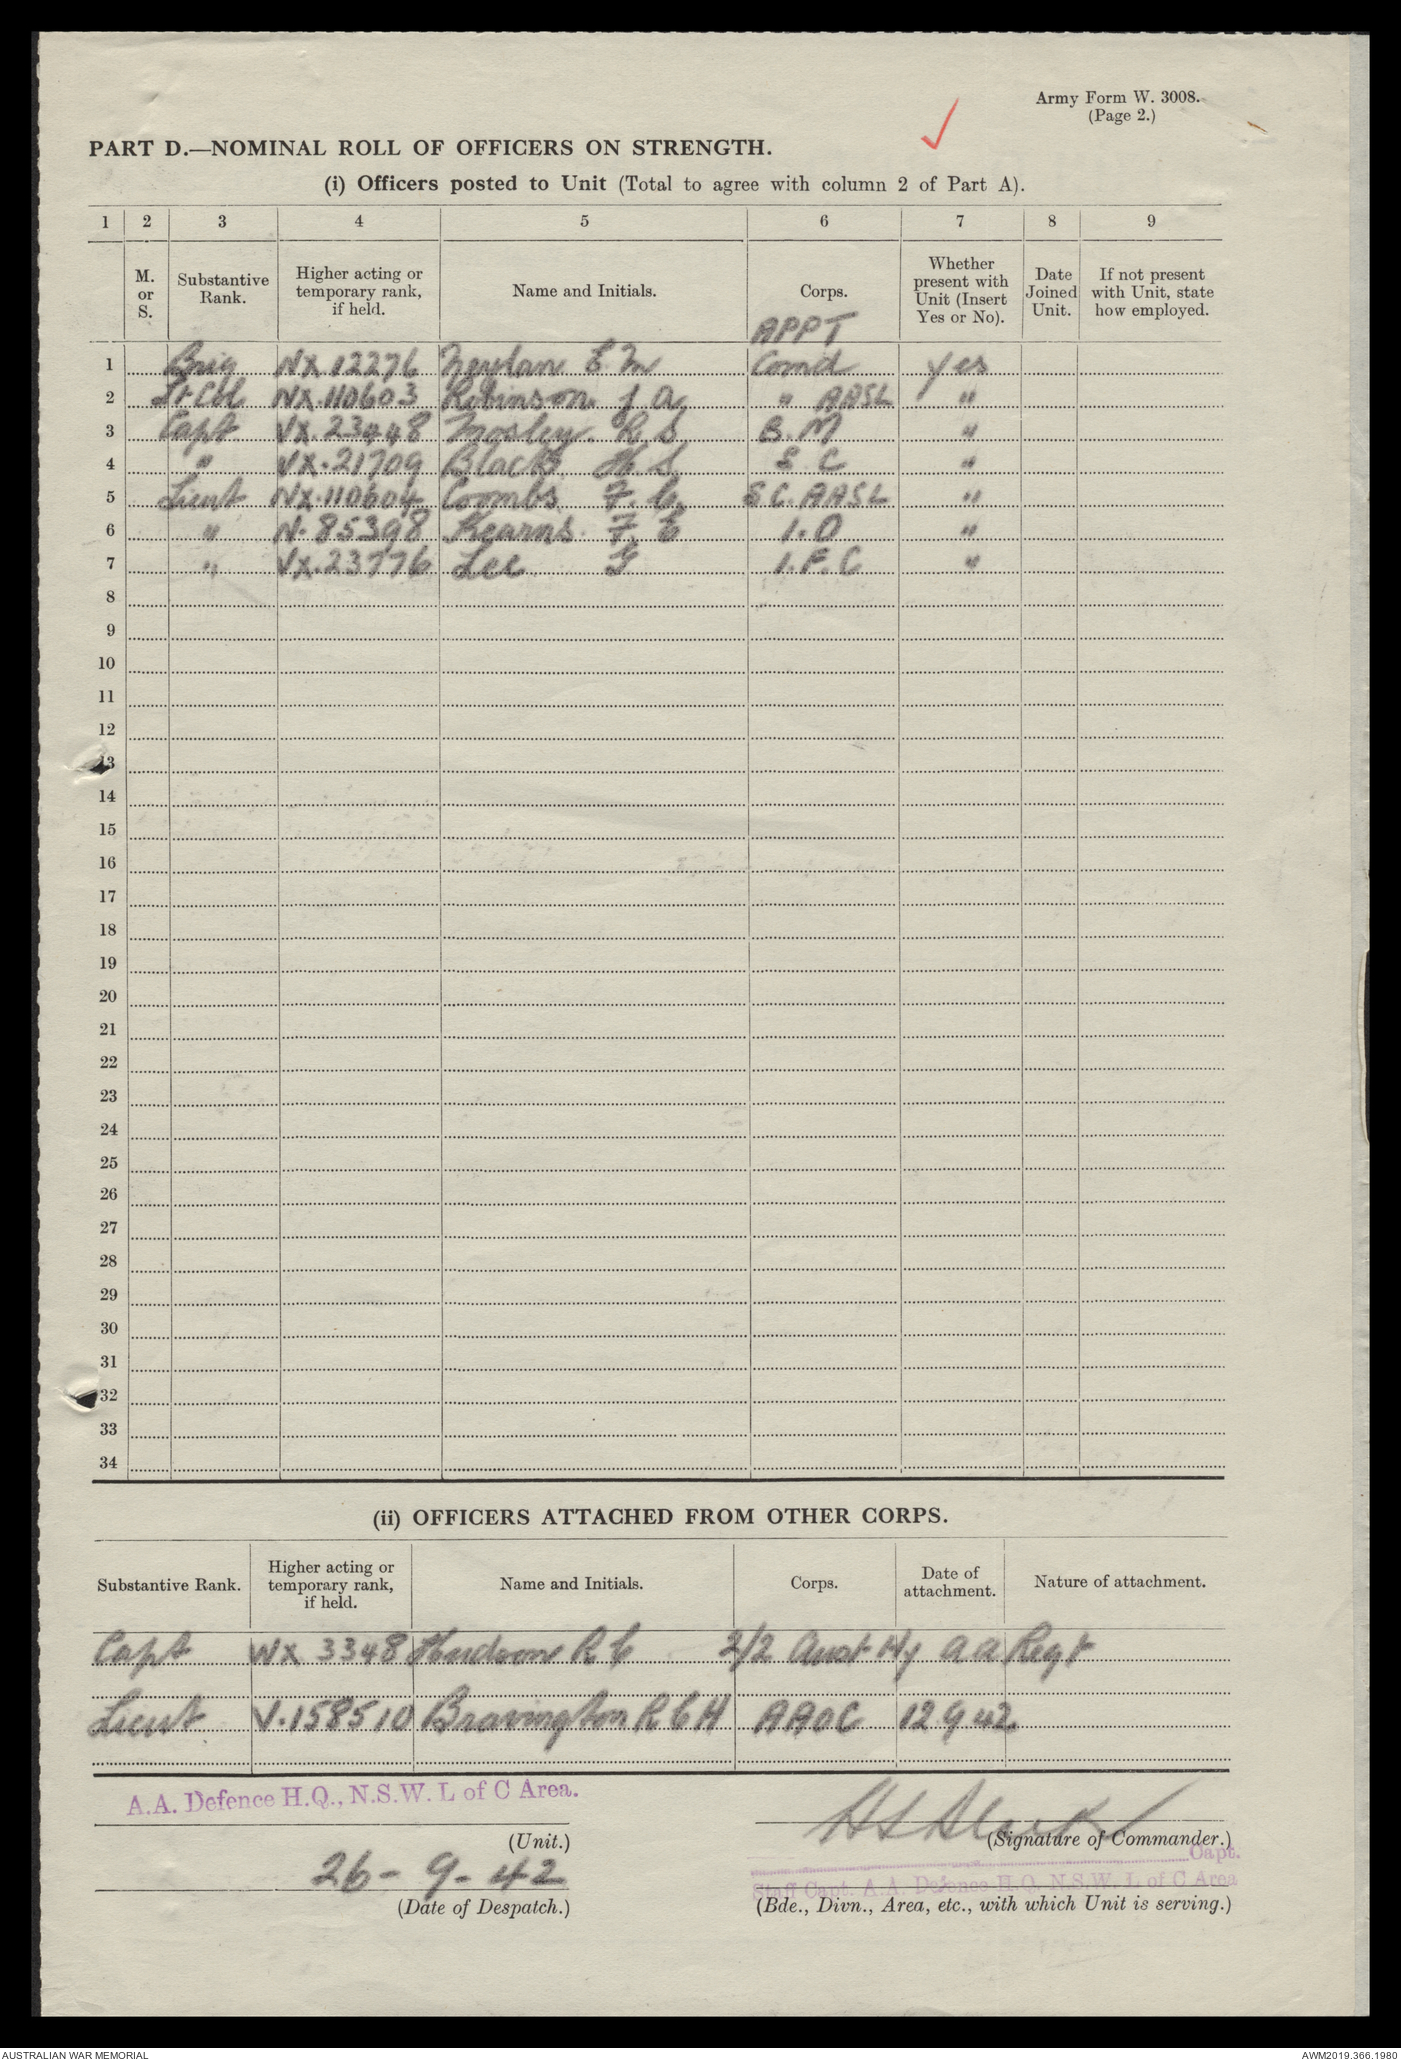 Army Form W. 3008.
(Page 2.)
PART D.—NOMINAL ROLL OF OFFICERS ON STRENGTH.
(i) Officers posted to Unit (Total to agree with column 2 of Part A).
1 2 3 4 5 6 7 8 9
M. or S. Substantive Rank. Higher acting or temporary rank, if held. Name and Initials. Corps. Whether present with Unit (Insert Yes or No). Date Joined Unit. If not present with Unit, state how employed.
APPT
1 Brig NX.12276 Neylan E. M Comd Yes
2 Lt Col NX.110603 Robinson J A " AASL "
3 Capt VX.23448 Mosley. R S B. M "
4 " VX.21709 Black H S S C "
5 Lieut NX.110604 Coombs F. C. S C. AASL "
6 " N.85398 Kearns F. E I.O "
7 " VX.23776 Lee G I.F.C "
8
9
10
11
12
13
14
15
16
17
18
19
20
21
22
23
24
25
26
27
28
29
30
31
32
33
34
(ii) OFFICERS ATTACHED FROM OTHER CORPS.
Substantive Rank. Higher acting or temporary rank, if held. Name and Initials. Corps. Date of attachment. Nature of attachment.
Capt WX 3348 Hudson R C 2/2 Aust Hy AA Regt
Lieut V.158510 Bravington R C H AAOC 12 9 42
A.A. Defence H.Q., N.S.W. L of C Area.
(Unit.)
H S Black
(Signature of Commander.)
Capt.
26-9-42
Staff Capt. A.A. Defence H.Q. N.S.W. L of C Area
(Date of Despatch.)
(Bde., Divn., Area, etc., with which Unit is serving.)
AUSTRALIAN WAR MEMORIAL
AWM2019.366.1980